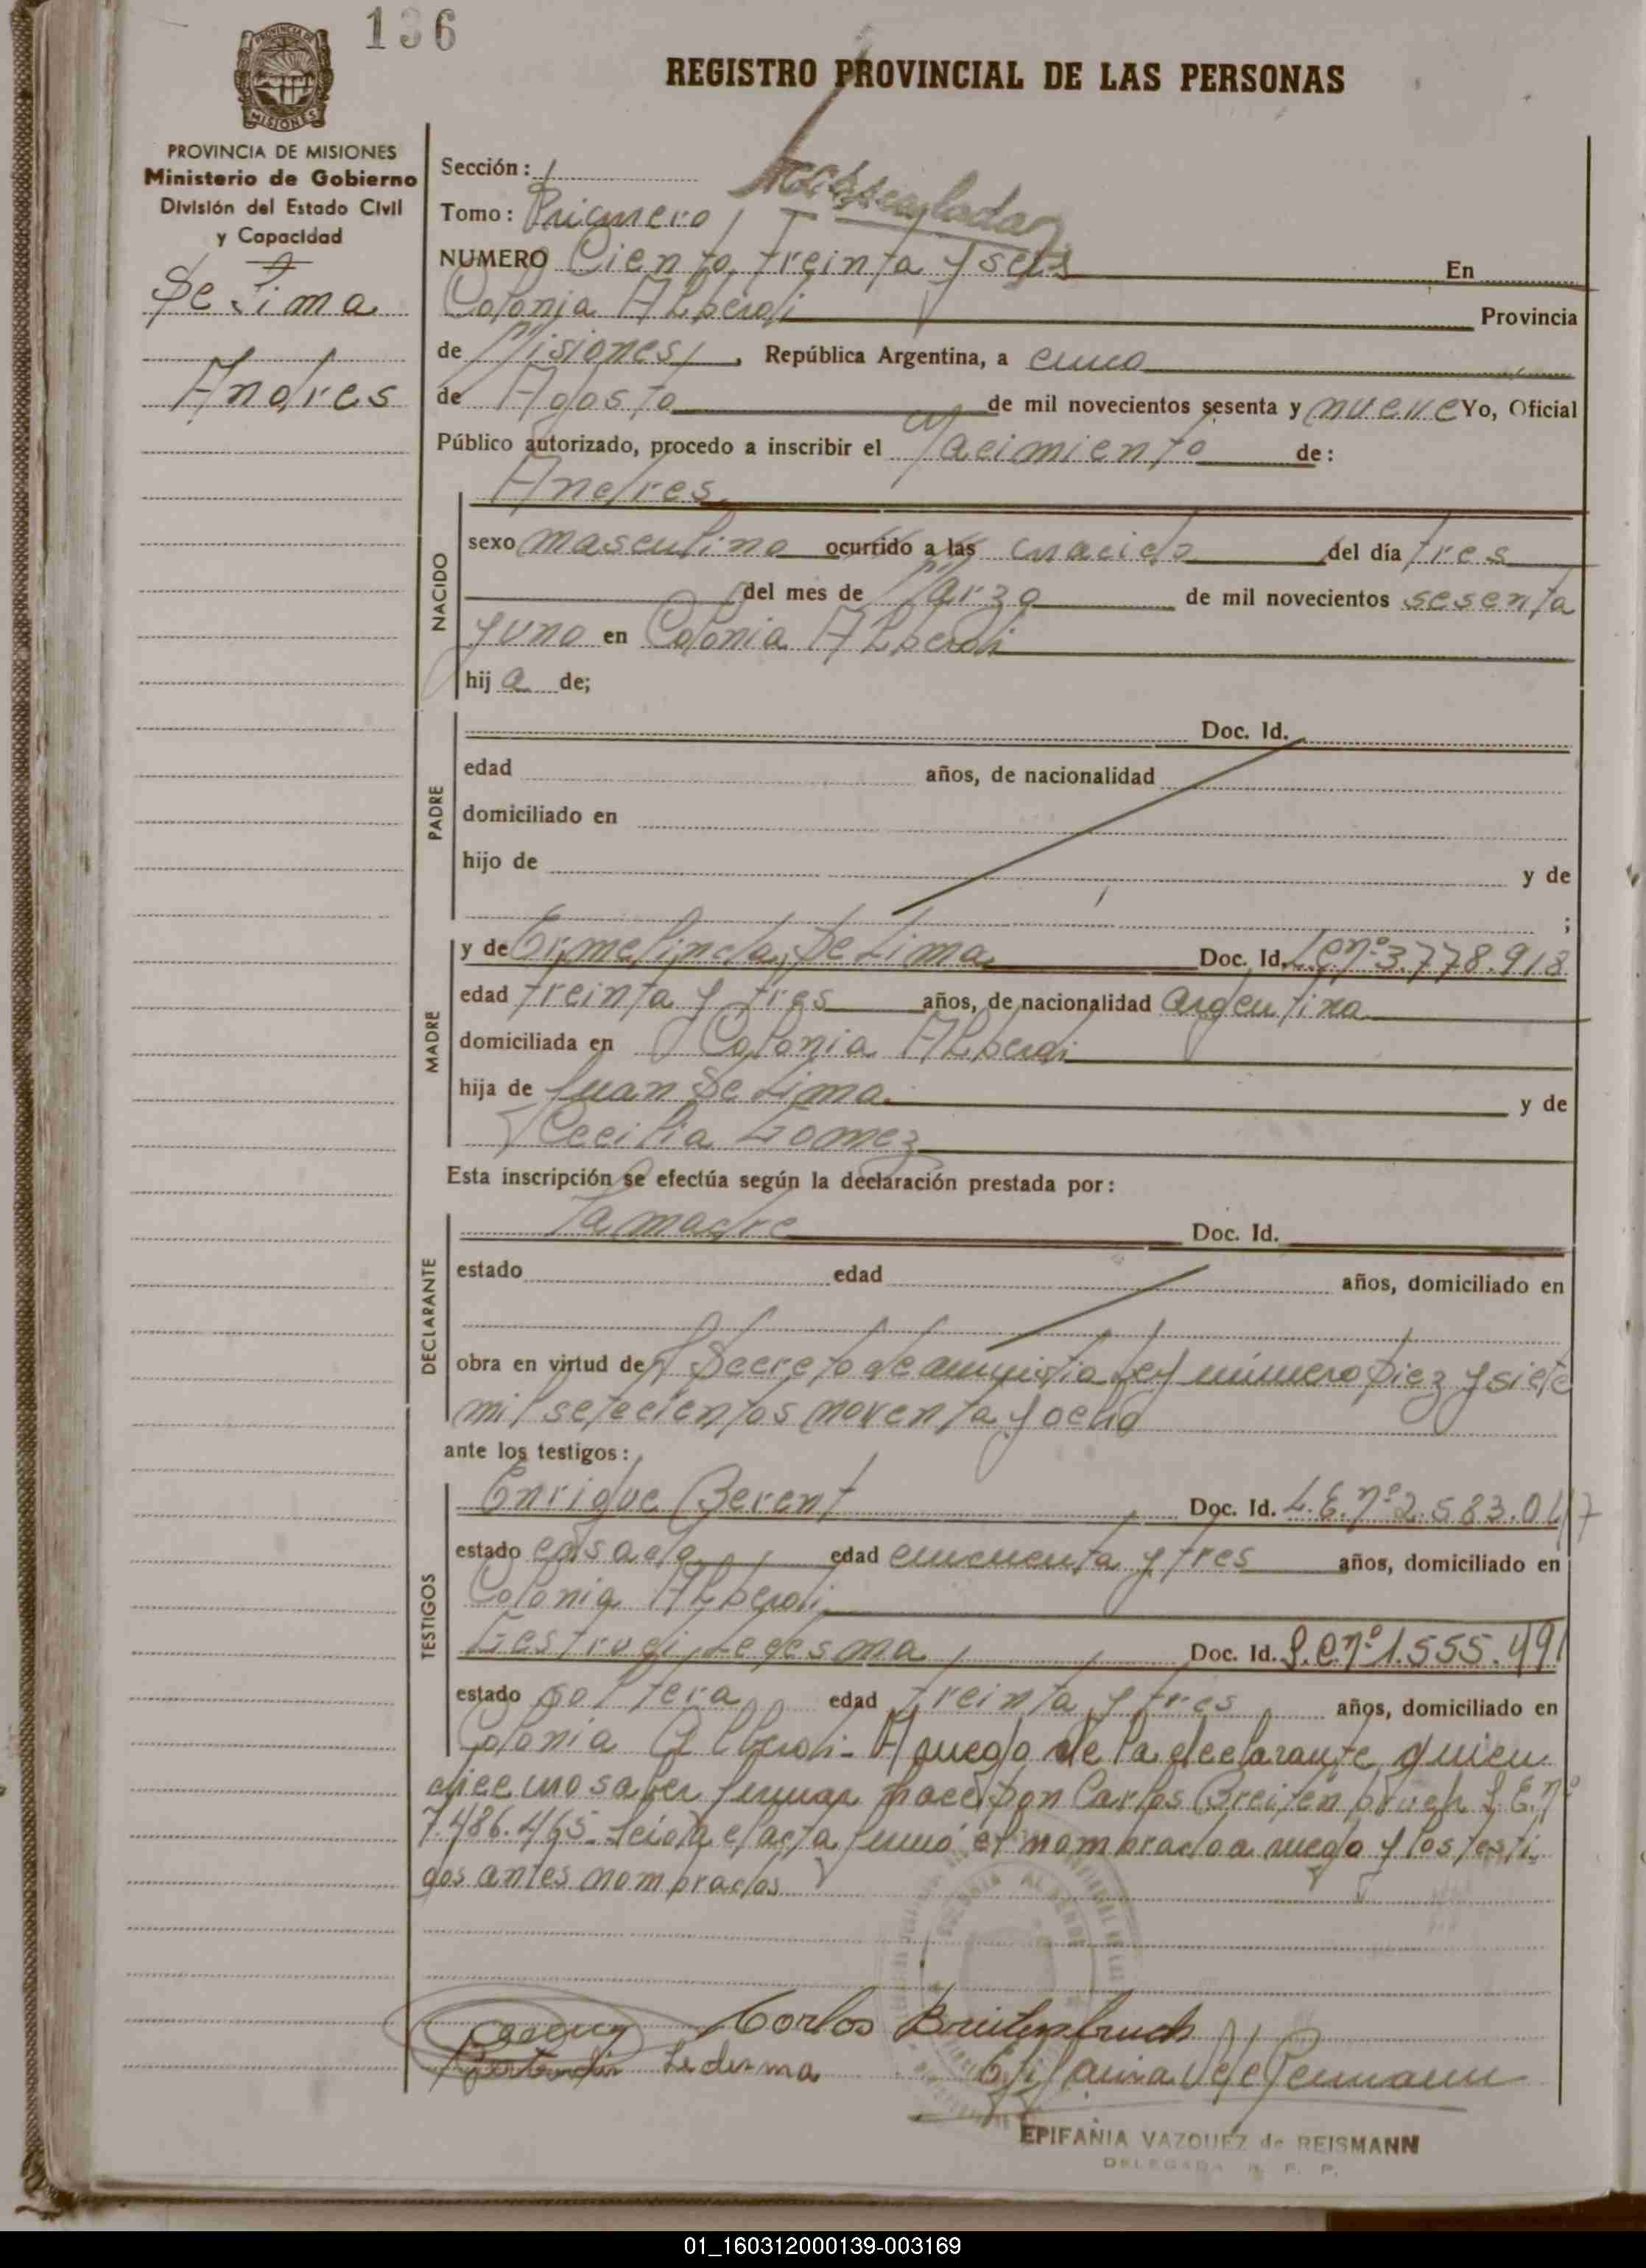 136
REGISTRO PROVINCIAL DE LAS PERSONAS
PROVINCIA DE MISIONES
PROVINCIA DE MISIONES
Ministerio de Gobierno
División del Estado Civil
y Capacidad
De Lima
Andres
Sección: 1
Tomo: Primero
NUMERO Ciento treinta y seis En
Colonia Alberdi Provincia
de Misiones, República Argentina, a cinco
de Agosto de mil novecientos sesenta y nueve Yo, Oficial
Público autorizado, procedo a inscribir el Nacimiento de:
Andres
NACIDO
sexo masculino ocurrido a las nacido del día tres
del mes de Marzo de mil novecientos sesenta
y uno en Colonia Alberdi
hij a de;
PADRE
Doc. Id.
edad años, de nacionalidad
domiciliado en
hijo de y de
;
MADRE
y de Ermelinda, De Lima Doc. Id. L.C. nº 3.778.918
edad treinta y tres años, de nacionalidad argentina
domiciliada en Colonia Alberdi
hija de Juan De Lima y de
Cecilia Gomez
Esta inscripción se efectúa según la declaración prestada por:
DECLARANTE
La madre Doc. Id.
estado edad años, domiciliado en
obra en virtud de Decreto de amnistia Ley número Diez y siete
mil setecientos noventa y ocho
ante los testigos:
TESTIGOS
Enrique Berent Doc. Id. L.E. nº 2.583.047
estado casado edad cincuenta y tres años, domiciliado en
Colonia Alberdi
Ledesma Doc. Id. L.C. nº 1.555.491
estado soltera edad treinta y tres años, domiciliado en
Colonia Alberdi - A ruego de la declarante quien
dice no saber firmar hace Don Carlos Breitenbruch L.E. nº
7.486.465. Leida el acta firmó el nombrado a ruego y los testi
gos antes nombrados
COLONIA ALBERDI
Carlos Breitenbruch
Ledesma
EPIFANIA VAZQUEZ de REISMANN
DELEGADA R. P. P.
01_160312000139-003169